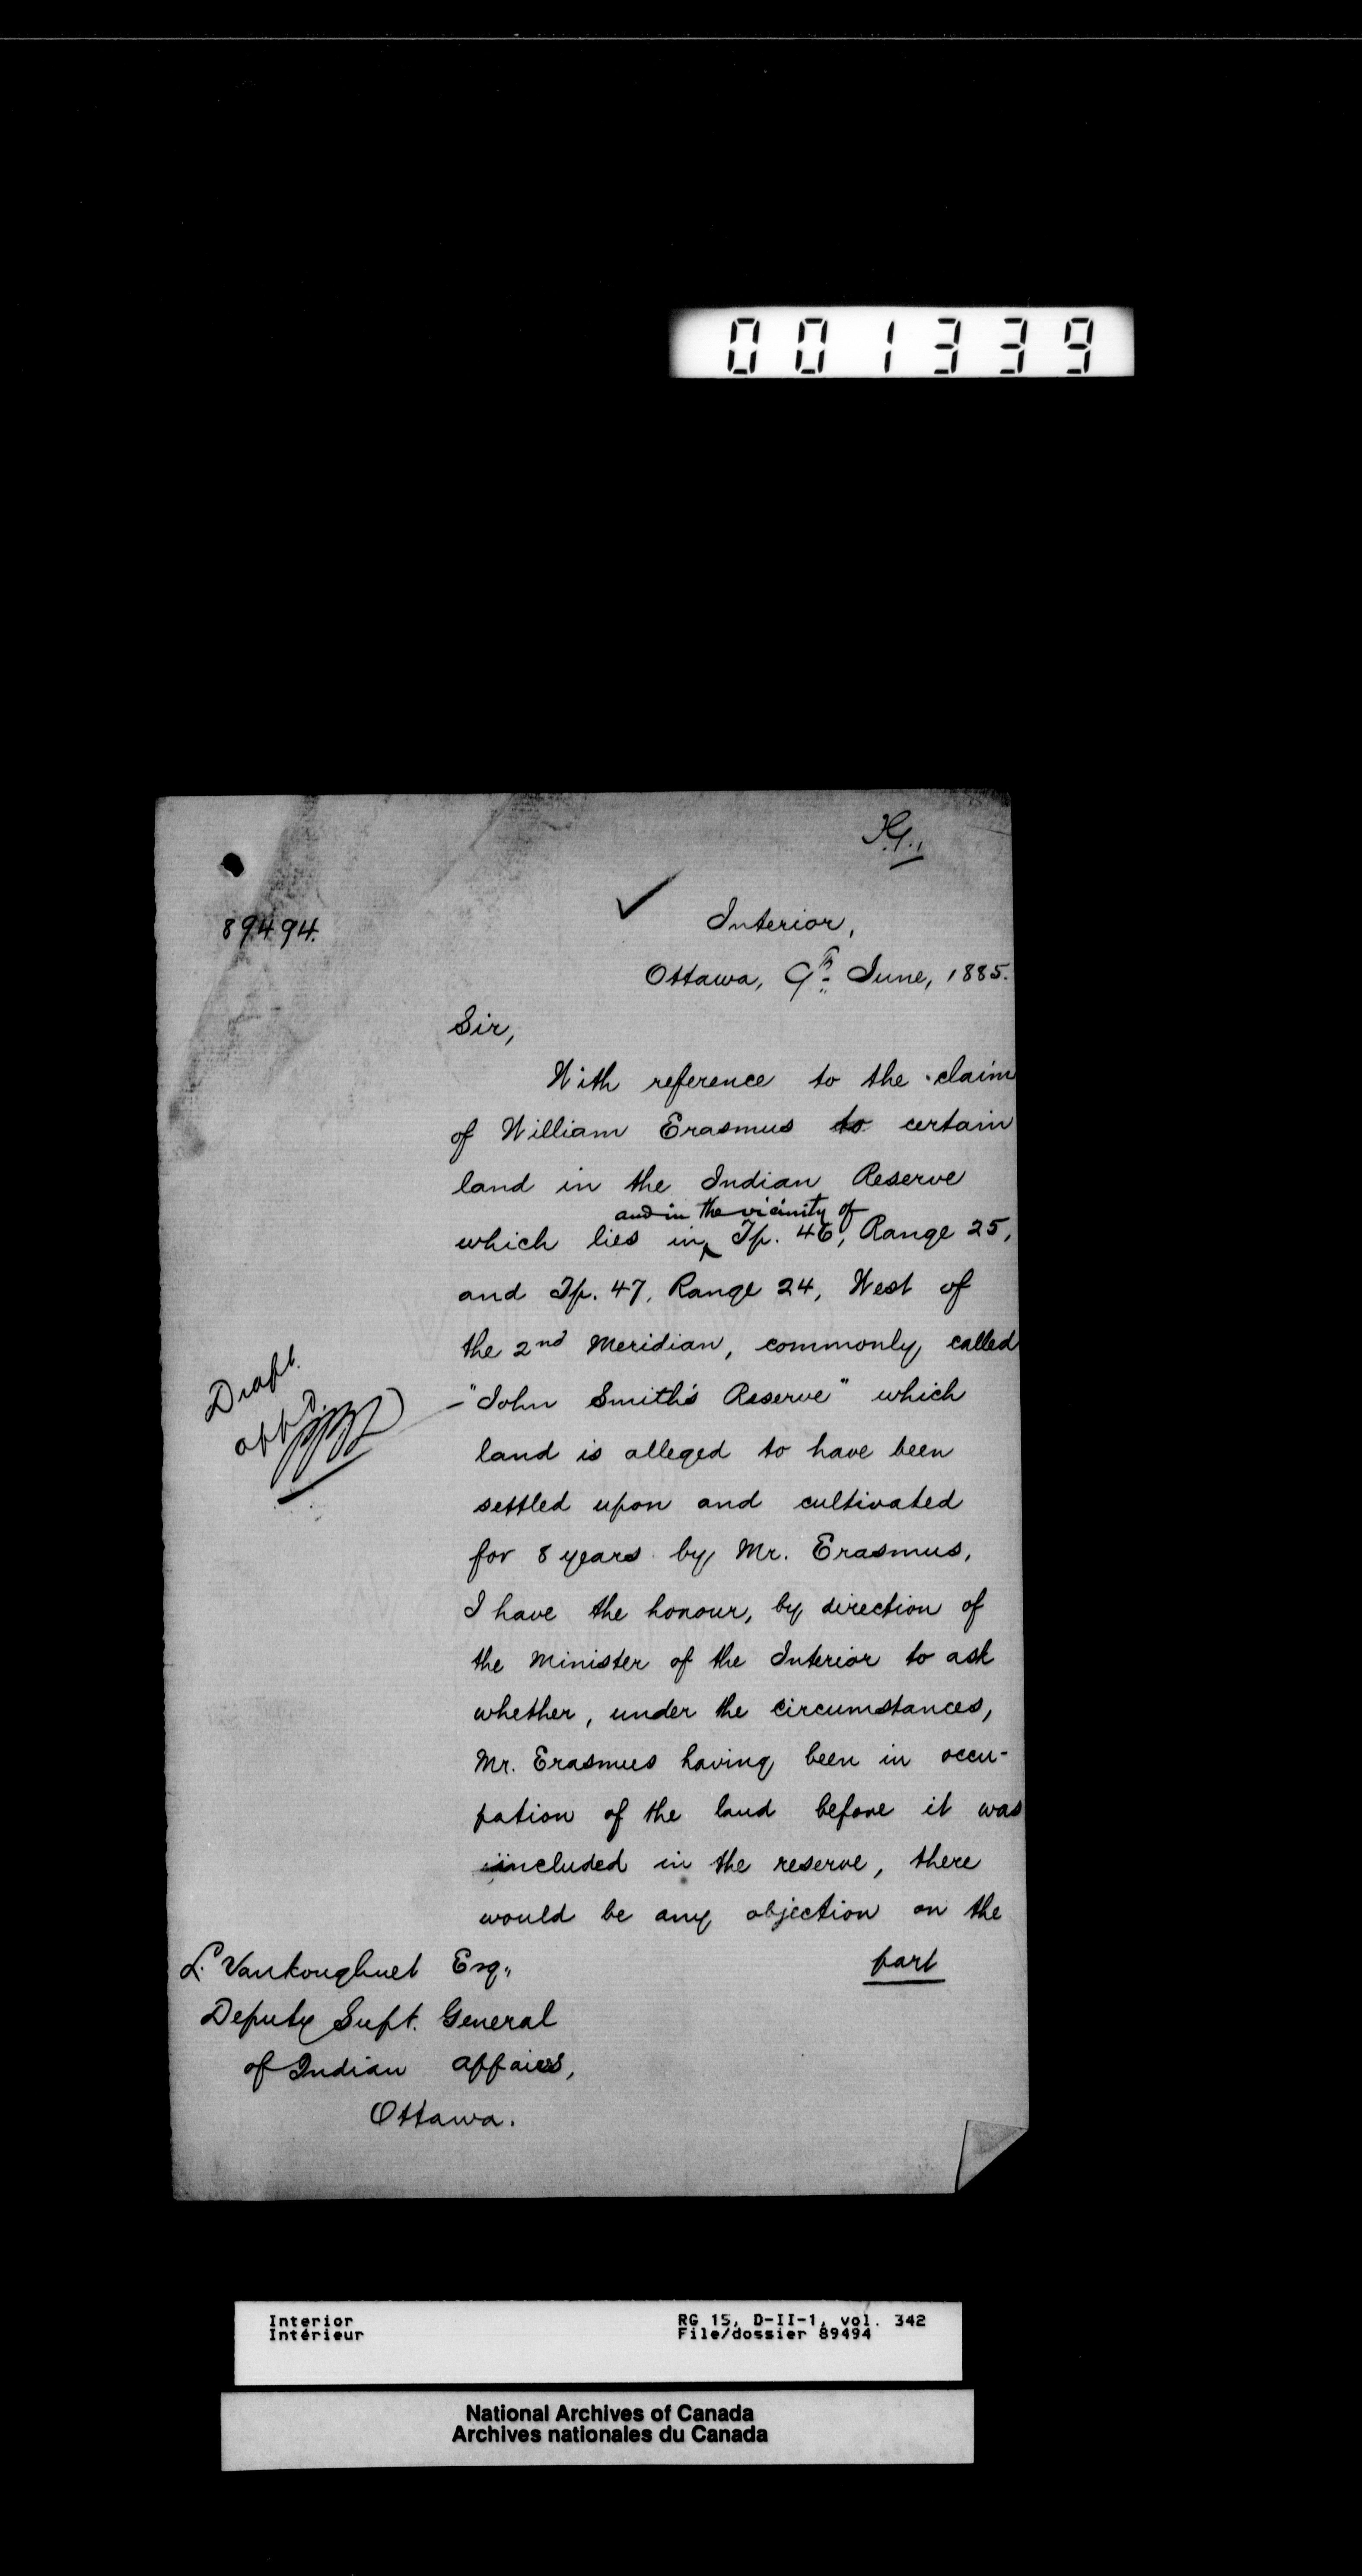 001339
89494.
Interior,
Ottawa, 9th June, 1885.
Sir,
With reference to the claim
of William Erasmus to certain
land in the Indian Reserve
and in the vicinity of
which lies in Tp. 46, Range 25,
and Tp. 47, Range 24, West of
the 2nd Meridian, commonly called
"John Smith's Reserve" which
land is alleged to have been
settled upon and cultivated
for 8 years by Mr. Erasmus,
I have the honour, by direction of
the Minister of the Interior to ask
whether, under the circumstances,
Mr. Erasmus having been in occu-
pation of the land before it was
included in the reserve, there
would be any objection on the
part
Draft.
appd.
L. Vankoughnet Esq.,
Deputy Supt. General
of Indian Affairs,
Ottawa.
Interior
Intérieur
RG 15, D-II-1, vol. 342
File/dossier 89494
National Archives of Canada
Archives nationales du Canada